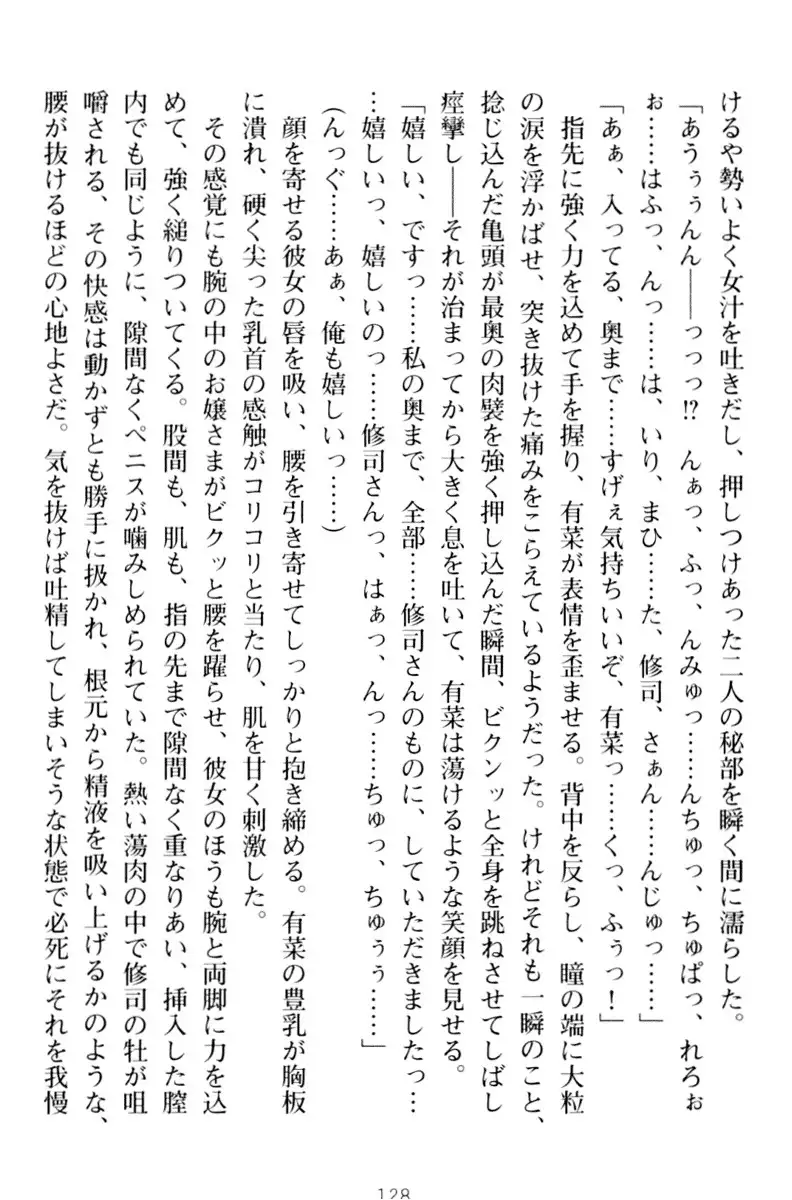 けるや勢いよく女汁を吐きだし、押しつけあった二人の秘部を瞬く間に濡らした。
「あうぅぅんん――っっっ!?　んぁっ、ふっ、んみゅっ……んちゅっ、ちゅぱっ、れろぉ
ぉ……はふっ、んっ……は、いり、まひ……た、修司、さぁん……んじゅっ……」
「あぁ、入ってる、奥まで……すげぇ気持ちいいぞ、有菜っ……くっ、ふぅっ！」
指先に強く力を込めて手を握り、有菜が表情を歪ませる。背中を反らし、瞳の端に大粒
の涙を浮かばせ、突き抜けた痛みをこらえているようだった。けれどそれも一瞬のこと、
捻じ込んだ亀頭が最奥の肉襞を強く押し込んだ瞬間、ビクンッと全身を跳ねさせてしばし
痙攣し――それが治まってから大きく息を吐いて、有菜は蕩けるような笑顔を見せる。
「嬉しい、ですっ……私の奥まで、全部……修司さんのものに、していただきましたっ…
…嬉しいっ、嬉しいのっ……修司さんっ、はぁっ、んっ……ちゅっ、ちゅぅぅ……」
(んっぐ……あぁ、俺も嬉しいっ……)
顔を寄せる彼女の唇を吸い、腰を引き寄せてしっかりと抱き締める。有菜の豊乳が胸板
に潰れ、硬く尖った乳首の感触がコリコリと当たり、肌を甘く刺激した。
その感覚にも腕の中のお嬢さまがビクッと腰を躍らせ、彼女のほうも腕と両脚に力を込
めて、強く縋りついてくる。股間も、肌も、指の先まで隙間なく重なりあい、挿入した膣
内でも同じように、隙間なくペニスが噛みしめられていた。熱い蕩肉の中で修司の牡が咀
嚼される、その快感は動かずとも勝手に扱かれ、根元から精液を吸い上げるかのような、
腰が抜けるほどの心地よさだ。気を抜けば吐精してしまいそうな状態で必死にそれを我慢
128